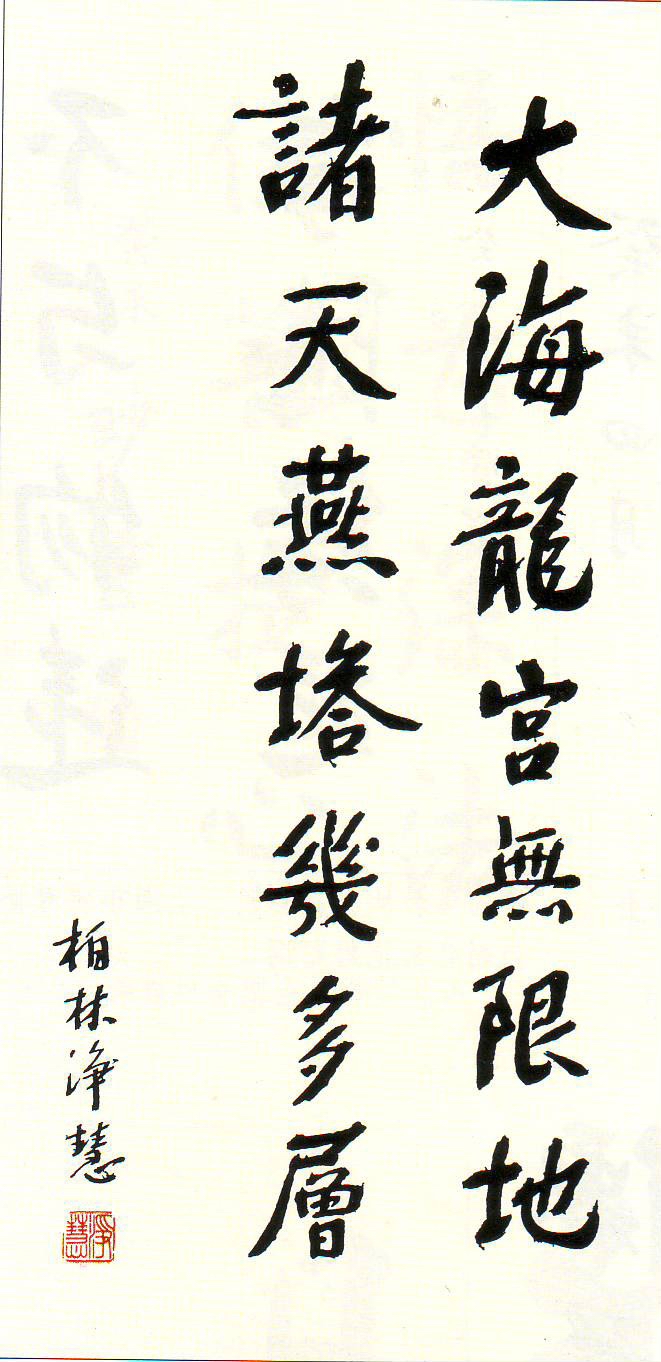 大海龍宮無限地
諸天燕塔幾多層
柏林淨慧
淨慧